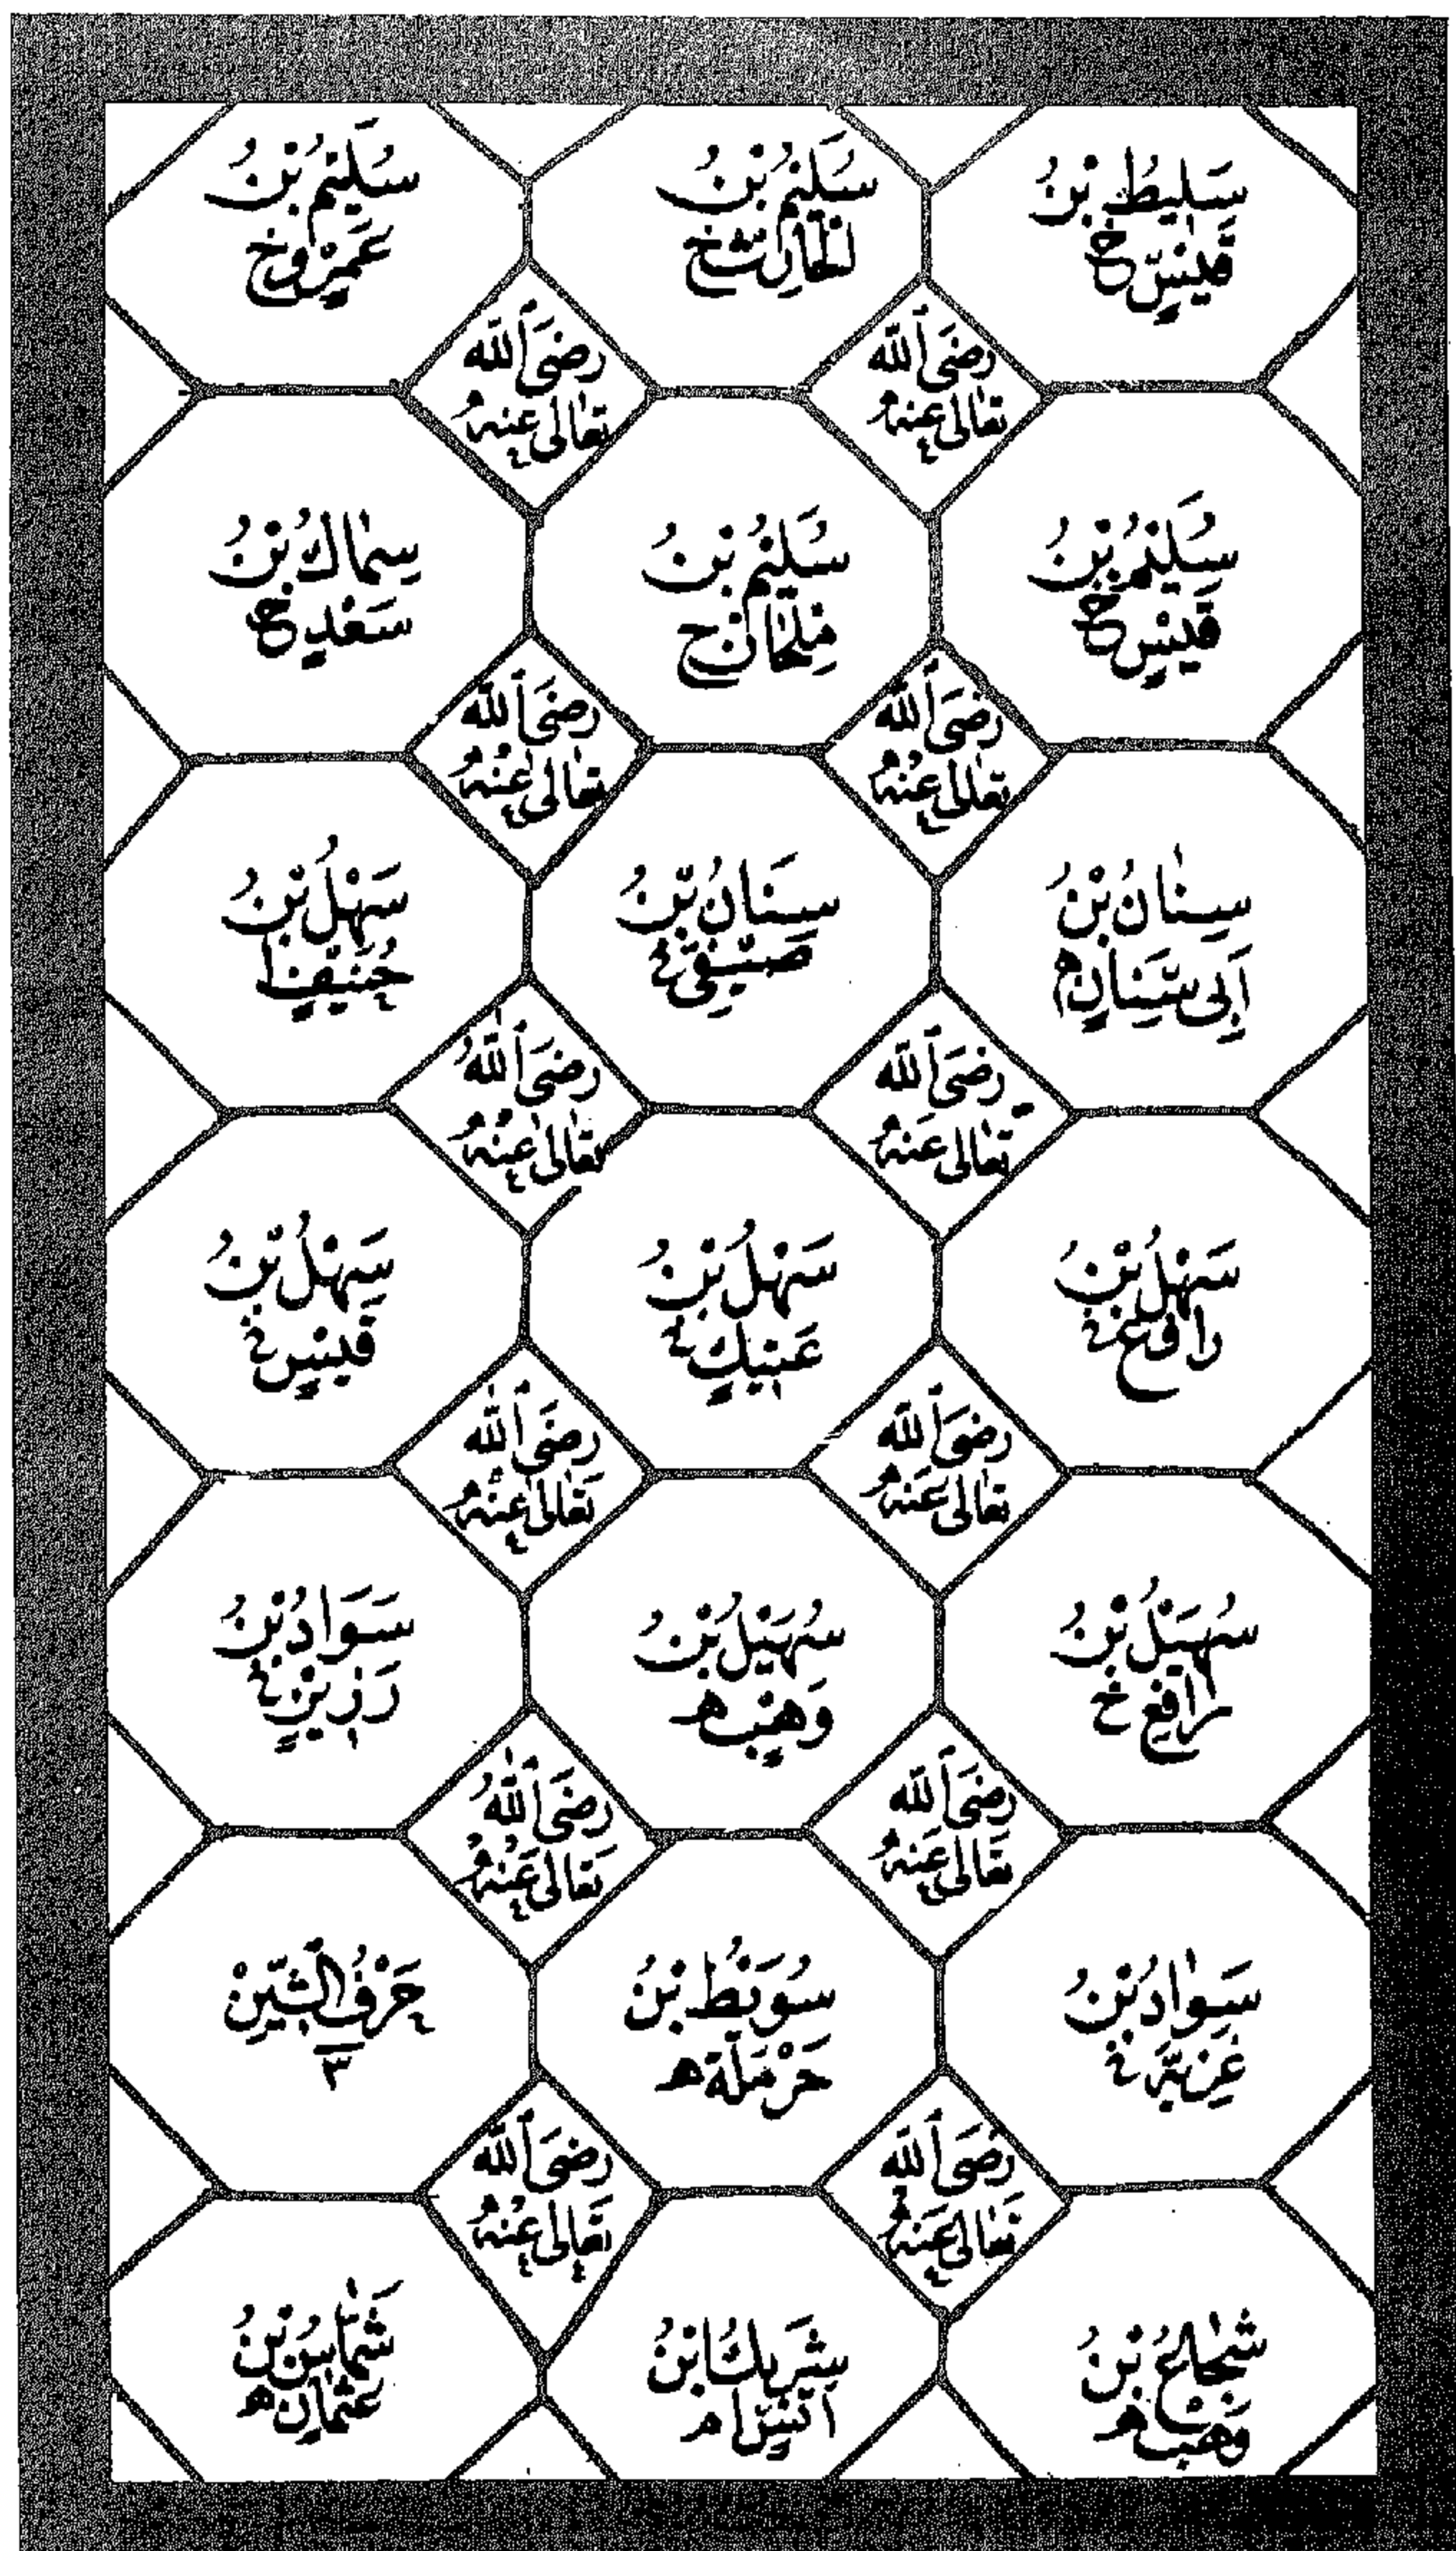 سَلِيطُ بْنُ
قَيْسٍ خ
سُلَيْمُ بْنُ
الْحَارِثِ خ
سُلَيْمُ بْنُ
عَمْرٍو خ
رَضِيَ اللّٰه
تَعَالٰى عَنْهُ
رَضِيَ اللّٰه
تَعَالٰى عَنْهُ
سُلَيْمُ بْنُ
قَيْسٍ خ
سُلَيْمُ بْنُ
مِلْحَانَ خ
سِمَاكُ بْنُ
سَعْدٍ خ
رَضِيَ اللّٰه
تَعَالٰى عَنْهُ
رَضِيَ اللّٰه
تَعَالٰى عَنْهُ
سِنَانُ بْنُ
اَبِى سِنَانٍ م
سِنَانُ بْنُ
صَيْفِيٍّ خ
سَهْلُ بْنُ
حُنَيْفٍ ا
رَضِيَ اللّٰه
تَعَالٰى عَنْهُ
رَضِيَ اللّٰهُ
تَعَالٰى عَنْهُ
سَهْلُ بْنُ
رَافِعٍ خ
سَهْلُ بْنُ
عَتِيكٍ خ
سَهْلُ بْنُ
قَيْسٍ خ
رَضِيَ اللّٰه
تَعَالٰى عَنْهُ
رَضِيَ اللّٰه
تَعَالٰى عَنْهُ
سُهَيْلُ بْنُ
رَافِعٍ خ
سُهَيْلُ بْنُ
وَهْبٍ م
سَوَادُ بْنُ
رَزِيْنٍ خ
رَضِيَ اللّٰه
تَعَالٰى عَنْهُ
رَضِيَ اللّٰهُ
تَعَالٰى عَنْهُ
سَوَادُ بْنُ
غَزِيَّةَ خ
سُوَيْبِطُ بْنُ
حَرْمَلَةَ م
حَرْفُ الشِّيْنِ
٣
رَضِيَ اللّٰه
تَعَالٰى عَنْهُ
رَضِيَ اللّٰه
تَعَالٰى عَنْهُ
شُجَاعُ بْنُ
وَهْبٍ م
شَرِيكُ بْنُ
اَنَسٍ ا م
شَمَّاسُ بْنُ
عُثْمَانَ م